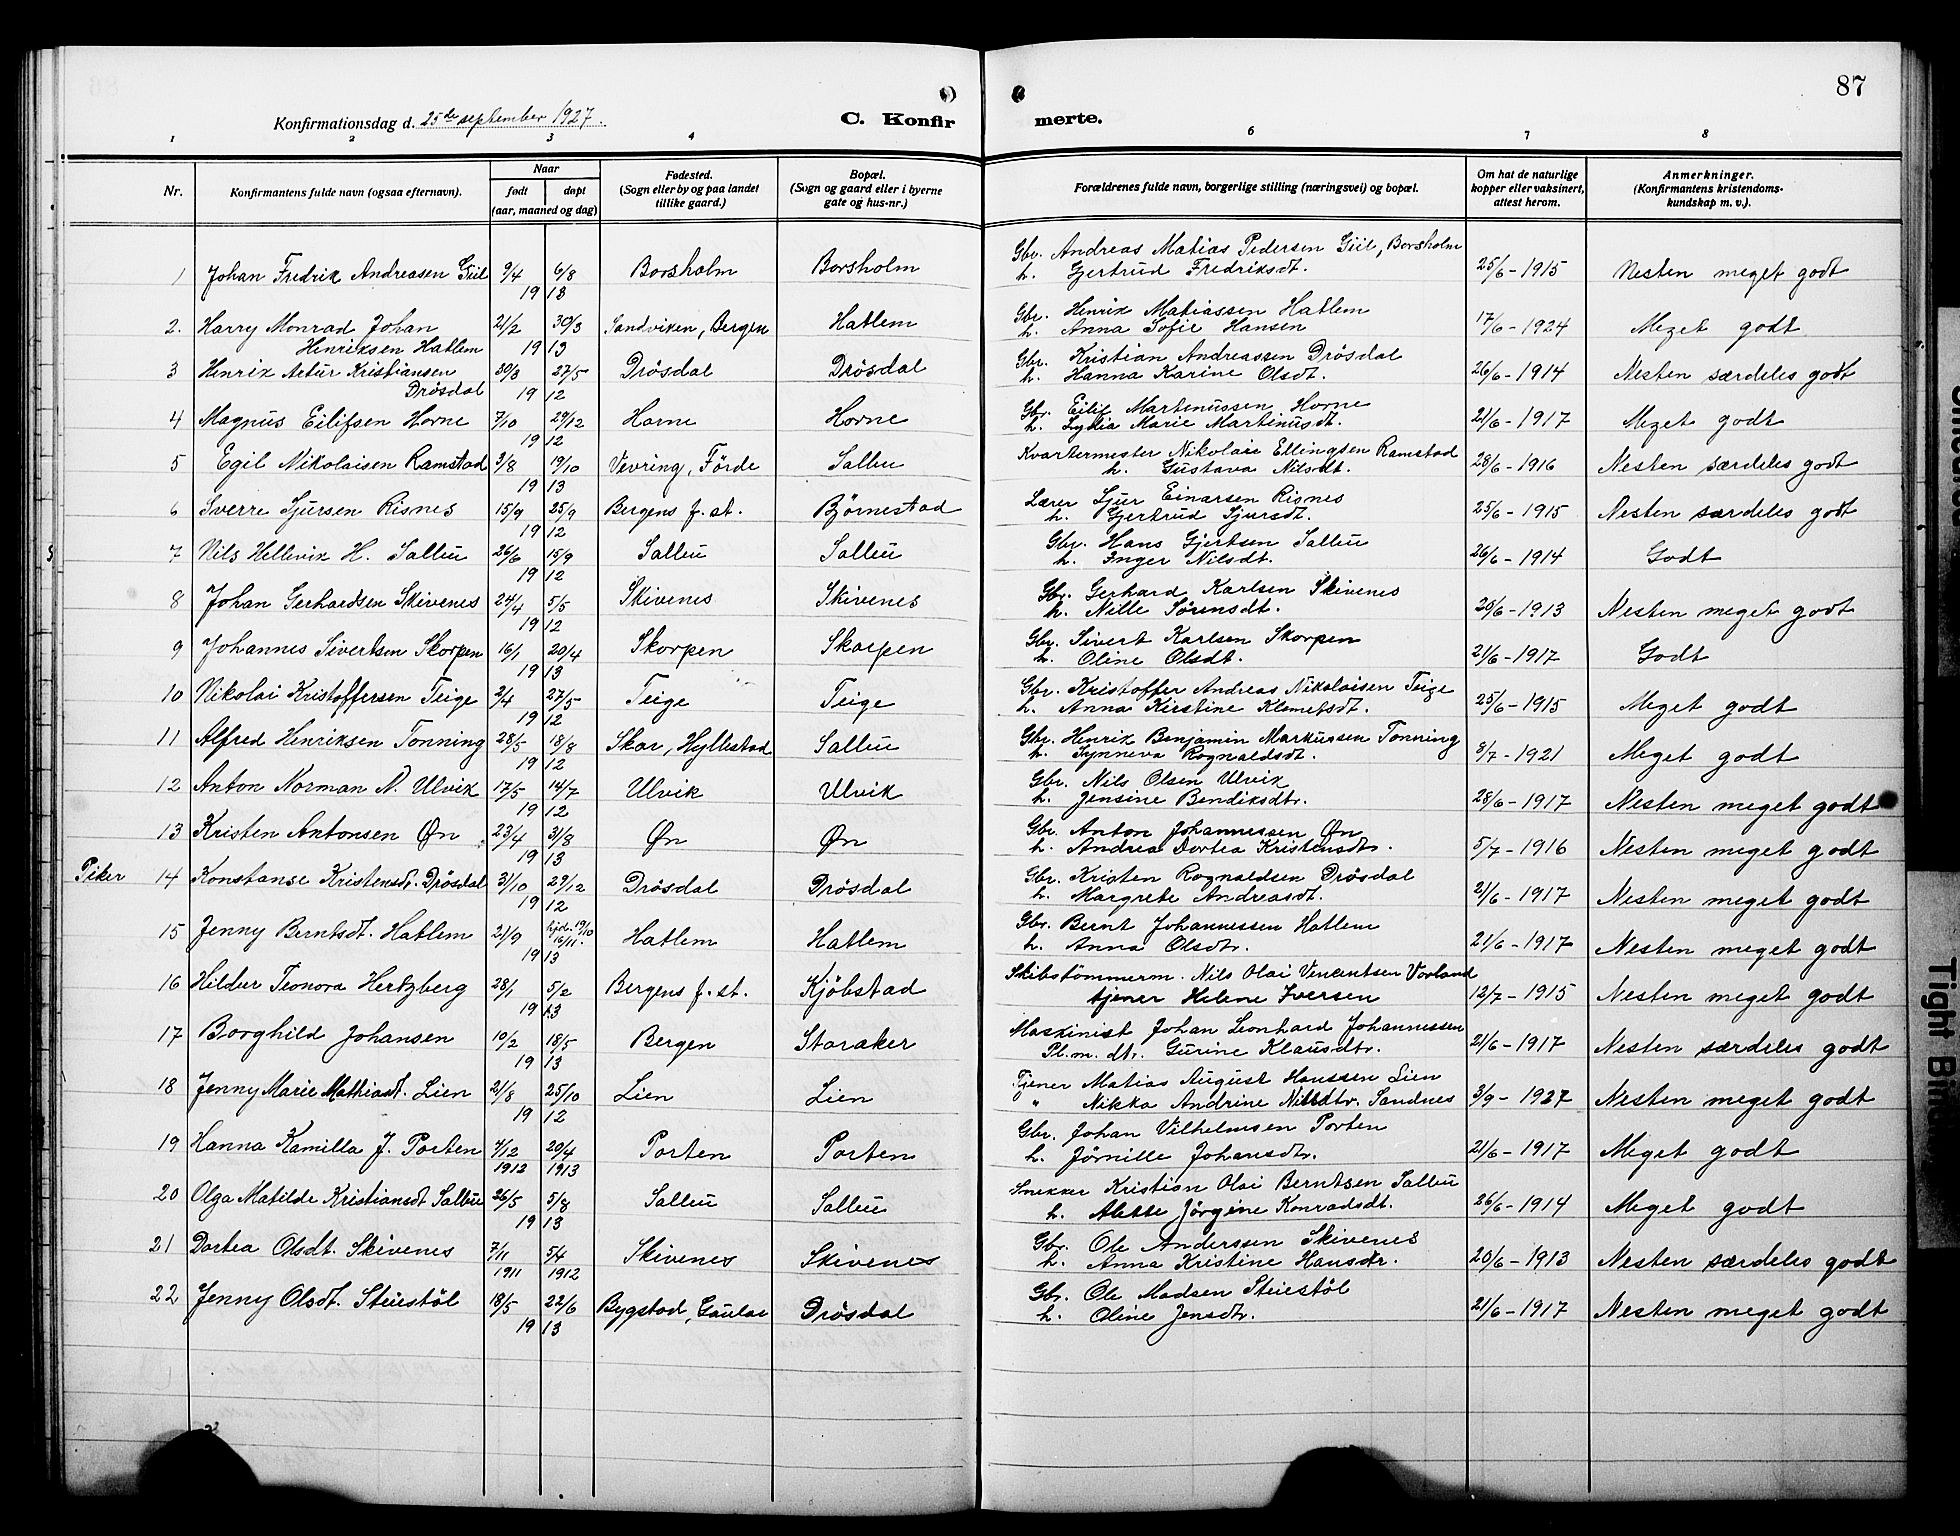 87
Konfirmationsdag d. 25de september 1927.
C. Konfirmerte.
1 2 3 4 6 7 8
Nr. Konfirmantens fulde navn (ogsaa efternavn). Naar født døpt (aar, maaned og dag) Fødested. (Sogn eller by og paa landet tillike gaard.) Bopæl. (Sogn og gaard eller i byerne gate og hus-nr.) Forældrenes fulde navn, borgerlige stilling (næringsvei) og bopæl. Om hat de naturlige kopper eller vaksinert, attest herom. Anmerkninger. (Konfirmantens kristendoms-kundskap m. v.).
1 Johan Fredrik Andreasen Giil 9/4 6/8 1913 Borsholm Borsholm Gbr. Andreas Matias Pedersen Giil, Borsholm
h. Gertrud Fredriksdt. 25/6-1915 Nesten meget godt
2. Harry Monrad Johan Henriksen Hatlem 21/2 30/3 1913 Sandviken, Bergen Hatlem Gbr. Henrik Matiassen Hatlem
h. Anna Sofie Hansen 17/6-1924 Meget godt
3 Henrik Artur Kristiansen Drösdal 30/3 27/5 1912 Drösdal Drösdal Gbr. Kristian Andreassen Drösdal
h. Hanna Karine Olsdt. 26/6-1914 Nesten særdeles godt
4 Magnus Eilifsen Horne 7/10 29/12 1912 Horne Horne Gbr. Eilif Martinussen Horne
h. Lydia Marie Martinusdt. 21/6-1917 Meget godt
5 Egil Nikolaisen Ramstad 3/8 19/10 1913 Vevring, Förde Salbu Kvartermester Nikolai Ellingsen Ramstad
h. Gustava Nilsdt. 28/6-1916 Nesten særdeles godt
6 Sverre Sjursen Risnes 15/9 25/9 1912 Bergens f. st. Björnestad Lærer Sjur Einarsen Risnes
h. Gjertrud Sjursdt. 25/6-1915 Nesten særdeles godt
7 Nils Hellevik H. Salbu 26/6 15/9 1912 Salbu Salbu Gbr. Hans Gjertsen Salbu
h. Inger Nilsdt. 26/6-1914 Godt
8 Johan Gerhardsen Skivenes 24/4 5/5 1912 Skivenes Skivenes Gbr. Gerhard Karlsen Skivenes
h. Nille Sörensdt. 20/6-1913 Nesten meget godt
9 Johannes Sivertsen Skorpen 16/1 20/4 1913 Skorpen Skorpen Gbr. Sivert Karlsen Skorpen
h. Oline Olsdt. 21/6-1917 Godt
10 Nikolai Kristoffersen Teige 2/4 27/5 1912 Teige Teige Gbr. Kristoffer Andreas Nikolaisen Teige
h. Anna Kirstine Klemetsdt. 25/6-1915 Meget godt
11 Alfred Henriksen Tonning 28/5 18/8 1912 Skor, Hyllestad Salbu Gbr. Henrik Benjamin Markussen Tonning
h. Synneva Rognaldsdt. 8/7-1921 Meget godt
12 Anton Norman N. Ulvik 17/5 14/7 1912 Ulvik Ulvik Gbr. Nils Olsen Ulvik
h. Jensine Bendiksdtr. 28/6-1917 Nesten meget godt
13 Kristen Antonsen Øn 23/4 31/8 1913 Øn Øn Gbr. Anton Johannessen Øn
h. Andrea Dortea Kristensdtr. 5/7-1916 Nesten meget godt
Piker 14 Konstanse Kristensdt. Drösdal 31/10 29/12 1912 Drösdal Drösdal Gbr. Kristen Rognaldsen Drösdal
h. Margrete Andreasdt. 21/6-1917 Nesten meget godt
15 Jenny Berntsdt. Hatlem 21/9 hjd. 19/10 16/11. 1913 Hatlem Hatlem Gbr. Bernt Johannessen Hatlem
h. Anna Olsdtr. 21/6-1917 Nesten meget godt
16 Hildur Teonora Hertzberg 28/1 5/2 1913 Bergens f. st. Kjöbstad Skibstömmerm. Nils Olai Vincentsen Vorland
tjener Helene Iversen 12/7-1915 Nesten meget godt
17 Borghild Johansen 10/2 18/5 1913 Bergen Storaker Maskinist Johan Leonhard Johannessen
Pl. m. dtr. Gurine Klausdtr. 21/6-1917 Nesten særdeles godt
18 Jenny Marie Mathiasdt. Lien 21/8 25/10 1912 Lien Lien Tjener Matias August Hanssen Lien
" Nikka Andrine Nilsdtr. Sandnes 3/9-1927 Nesten meget godt
19 Hanna Kamilla J. Porten 7/12 1912 20/4 1913 Porten Porten Gbr. Johan Vilhelmsen Porten
h. Jörnille Johansdtr. 21/6-1917 Meget godt
20 Olga Matilde Kristiansdt Salbu 26/5 5/8 1913 Salbu Salbu Snekker Kristian Olai Berntsen Salbu
h. Alette Jörgine Konradsdt. 26/6-1914 Meget godt
21 Dortea Olsdt. Skivenes 7/11 1911 5/4 1912 Skivenes Skivenes Gbr. Ole Anderssen Skivenes
h. Anna Kristine Hansdtr. 20/6-1913 Nesten særdeles godt
22 Jenny Olsdt. Steiestöl 18/5 22/6 1913 Bygstad, Gaular Drösdal Gbr. Ole Madsen Steiestöl
h. Oline Jensdtr. 21/6-1917 Nesten meget godt